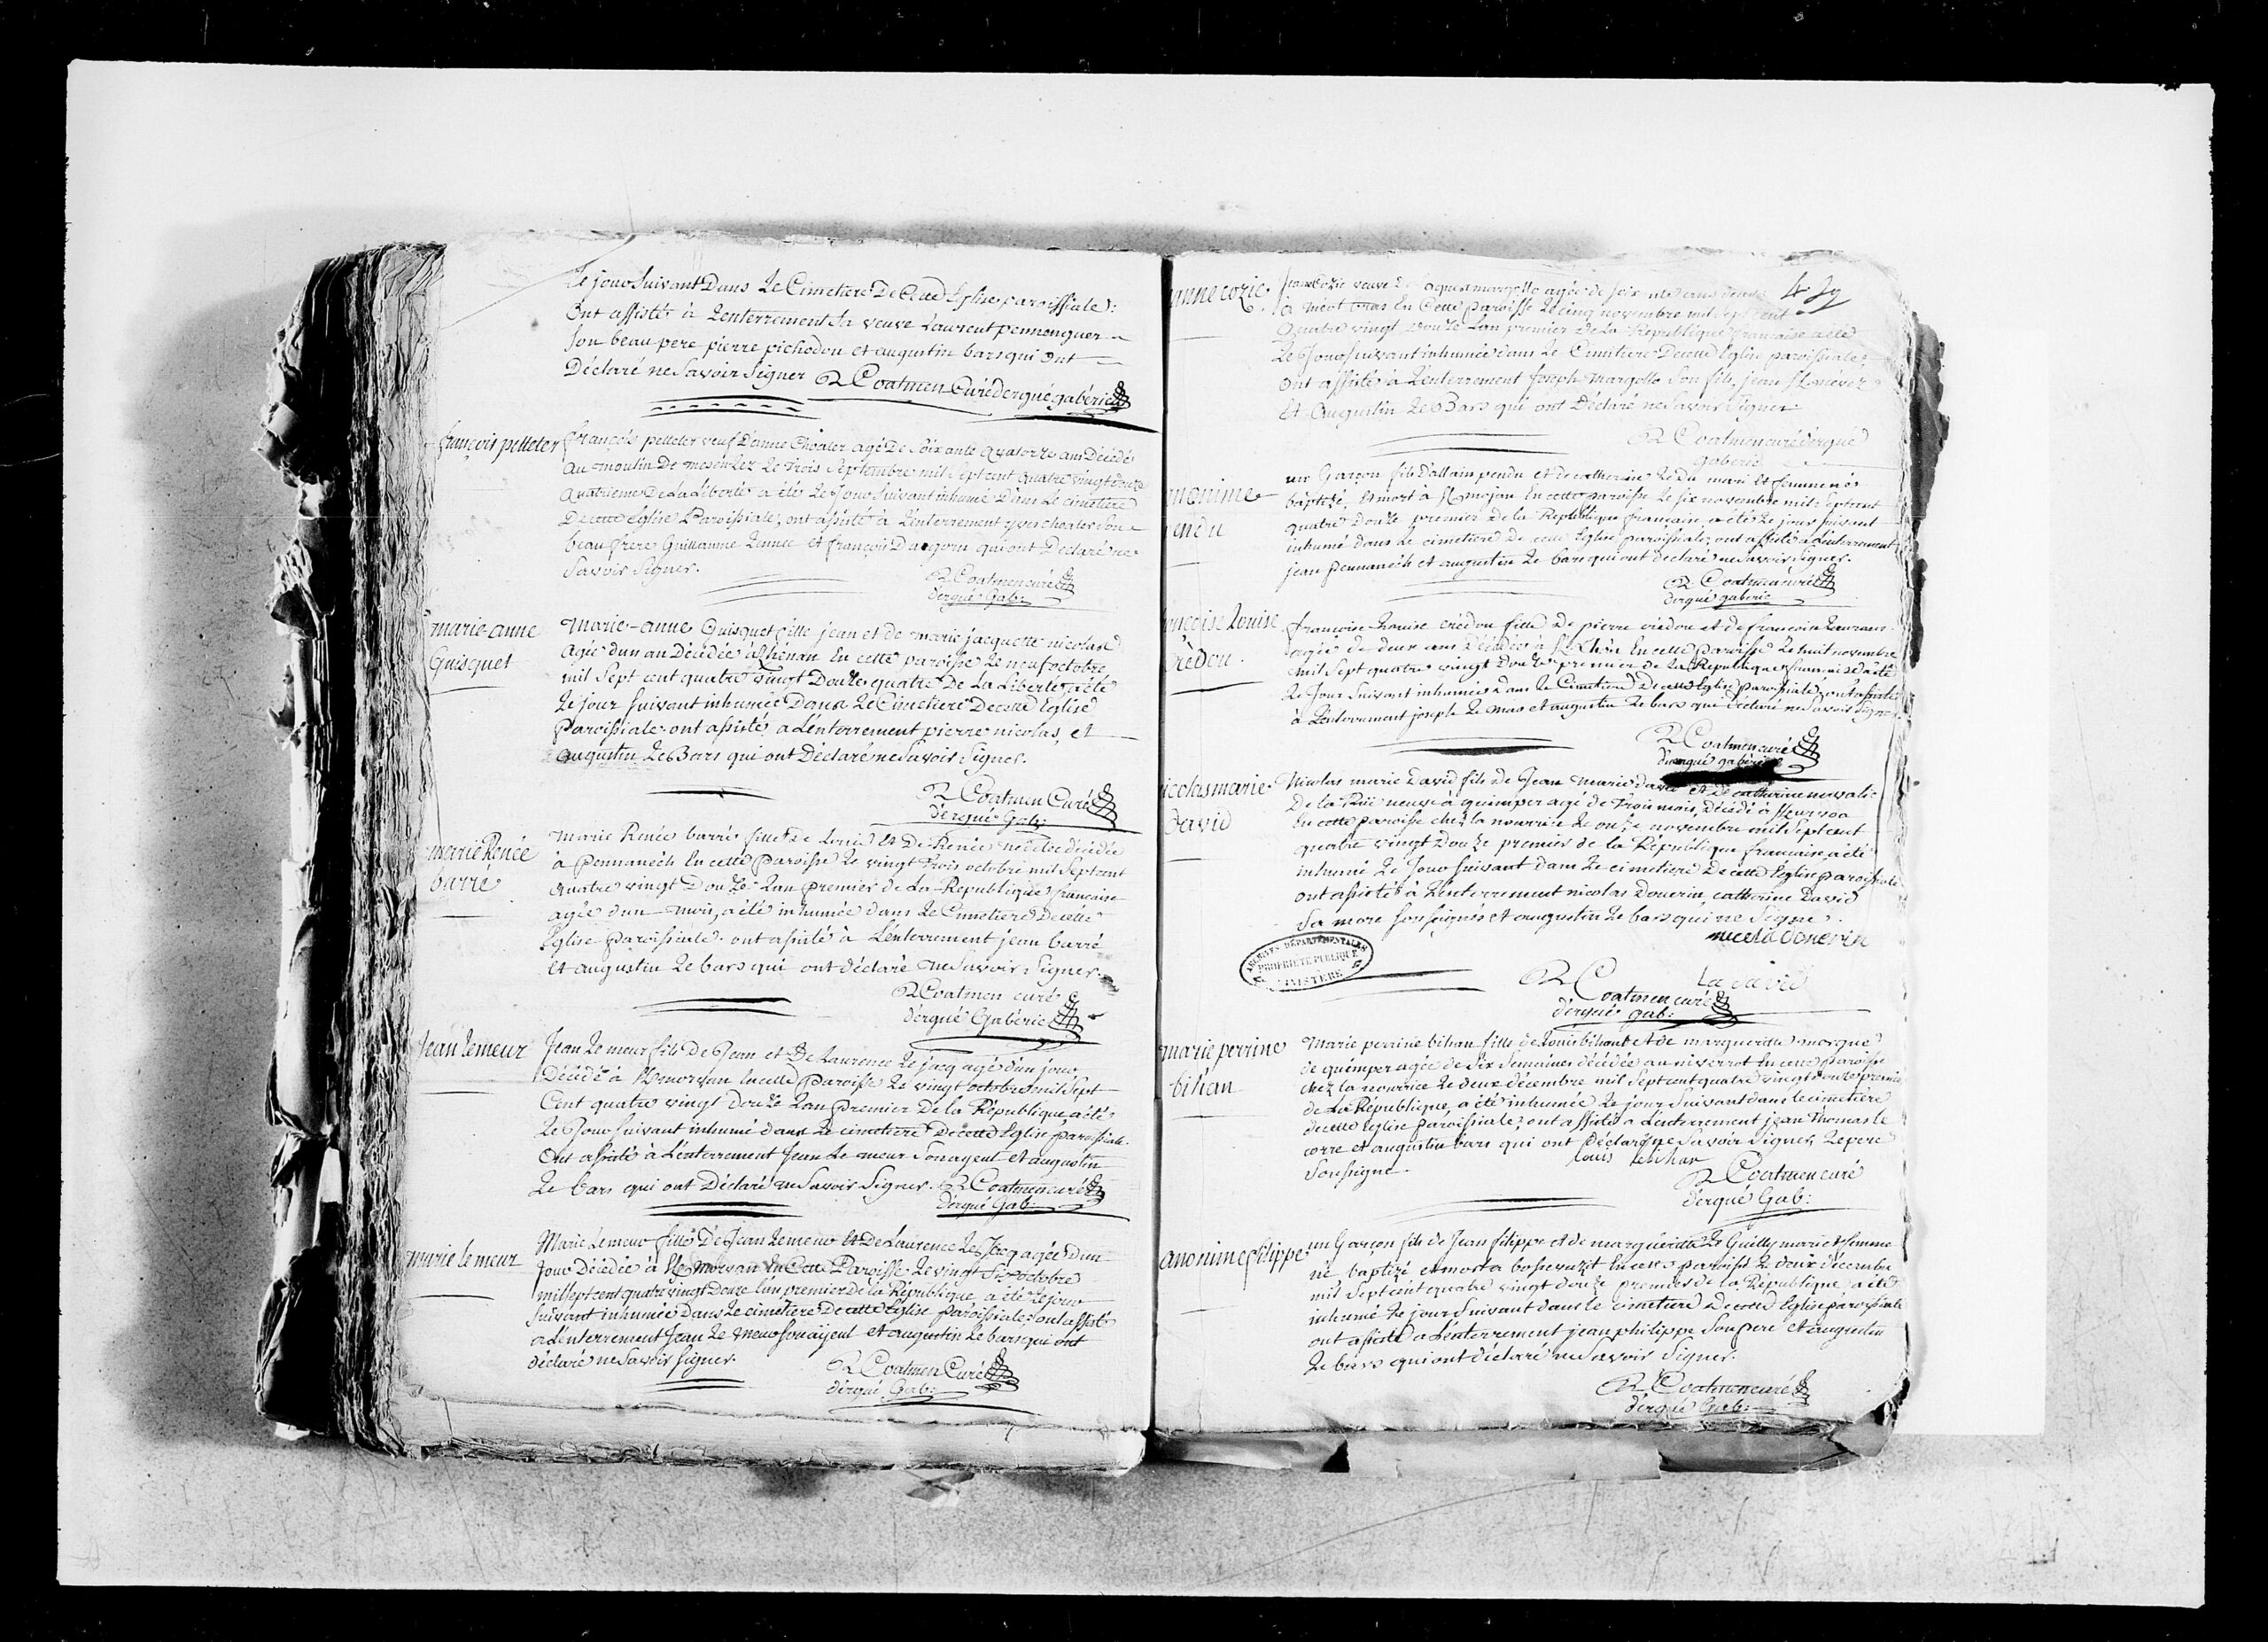 Le jour Suivant Dans Le Cimetiere De Cette Eglise paroissiale:
Ont assisté à Lenterrement La veuve Laurent pennonguer
Son beau pere pierre pichodou et augustin bars qui ont
Déclaré ne Savoir Signer R Coatmen Curé dergué gabéric
françois pelleter
françois pelleter veuf Danne Choaler agé De Soixante quatorze ans Décédé
au moulin De mesenlez Le trois Septembre mil Sept cent quatre vingt douze
quatrieme De La Liberté a été Le Jour Suivant inhumé Dans Le cimetiere
De cette Eglise Paroissiale, ont assisté à Lenterrement yves choaler Son
beau frere Guillaume Lennec et françois Dagorn qui ont Declaré ne
Savoir Signer.
R Coatmen curé
dergué Gab:
marie-anne
Guisquet
Marie-anne Guisquet fille jean et de marie jacquette nicolas
Agée dun an Décédée à Lhénan En cette paroisse Le neuf octobre
mil Sept cent quatre vingt Douze quatre De La Liberté, a été
Le jour Suivant inhumée Dans Le Cimetiere De cette Eglise
Paroissiale. ont assisté, a Lénterrement pierre nicolas, et
augustin Le Bars qui ont Déclaré ne Savoir Signer.
R Coatmen Curé
dergué Gab:
marie Renée
barré
Marie Renée barré fille de Louis Et De Renée décédée
à Pennanech En cette Paroisse Le vingt trois octobre mil Sept cent
quatre vingt Douze Lan premier de La République française
agée dun mois, a été inhumée dans Le Cimetiere De cette
Eglise Paroissiale. ont assisté à Lénterrement jean barré
Et augustin Le bars qui ont déclaré ne Savoir Signer.
R Coatmen curé
dergué Gabéric
Jean Lemeur
Jean Le meur fils De Jean et De Laurence Le jacq agé dun jour
Décédé à Kmorvan En cette Paroisse Le vingt octobre mil Sept
Cent quatre vingt Douze Lan Premier De la République a été
Le Jour Suivant inhumé dans Le cimetiere De cette Eglise Paroissiale.
Ont assisté à Lénterrement Jean Le meur Son ayeul et augustin
Le bars qui ont Déclaré ne Savoir Signer. R Coatmen curé
dergué Gab:
marie Le meur
Marie Le meur fille De Jean Lemeur Et De Laurence Le Jacq agée Dun
Jour Décédée à Kmorvan En Cette Paroisse Le vingt Six octobre
mil Sept cent quatre vingt Douze Lan premier de la République a été Le jour
Suivant inhumée Dans Le cimetiere De cette Eglise paroissiale: ont assisté
a Lénterrement Jean Le Meur Son ayeul et augustin Le bars qui ont
déclaré ne Savoir Signer.
R Coatmen Curé
dergué Gab:
anne cozic.
cozic veuve De Jacques margollo agée de Soixante ans
à En Cette paroisse Le cinq novembre mil Sept cent
quatre vingt Douze Lan premier De La République française a été
Le Jour Suivant inhumée dans Le Cimetiere De cette Eglise paroissiale,
Ont assisté à Lenterrement Joseph Margollo Son fils, jean
Et Augustin Le Bars qui ont Déclaré ne Savoir Signer
R Coatmen curé dergué
Gaberic
nonime
endu
un Garçon fils Dallain pendu et De catherine Le Du mari Et femme né
baptizé, Et mort à Kmojan En cette paroisse Le Six novembre mil Sept cent
quatre Douze premier De la République française, a été Le jour Suivant
inhumé dans Le cimetiere De cette Eglise paroissiale: ont assisté à Lenterrement
jean Pennanech et augustin Le bars qui ont déclaré ne Savoir Signer.
R Coatmen curé
dergué gaberic
nçoise Louise
rédou.
françoise Louise crédou fille De pierre crédou et de françoise Laurans
agée de deux ans Décédée à En cette paroisse Le huit novembre
mil Sept quatre vingt Douze premier de La République française a été
Le Jour Suivant inhumée Dans Le Cimetiere De cette Eglise Paroissiale, ont assisté
à Lenterrement joseph Le mao et augustin Le bars qui déclaré ne Savoir Signer.
R Coatmen curé
dergué gabéric
icolas marie
David
Nicolas marie David fils de Jean Marie David et De catherine
De La Rue neuve à quimper agé de trois mois, Décédé à
En cette paroisse chez la nourrice Le onze novembre mil Sept cent
quatre vingt Douze premier de la République française, a été
inhumé Le Jour Suivant dans Le cimetiere De cette Eglise paroissiale
ont assisté à Lénterrement nicolas Donerin, catherine David
Sa mare Soussignés et augustin Le bars qui ne Signe.
nicola donerin
La david
R Coatmen curé
dergué gab:
ARCHIVES DÉPARTEMENTALES
PROPRIÉTÉ PUBLIQUE
FINISTÈRE
marie perrine
bihan
Marie perrine bihan fille de Louis bihan et de marguerite morgue
de quimper agée de Six Semaines décédée au niverrot En cette paroisse
chez la nourrice Le deux décembre mil Sept cent quatre vingt douze premier
de La République, a été inhumée Le jour Suivant dans Le cimetiere
De cette Eglise paroissiale; ont assisté a Lenterrement jean Thomas le
corre et augustin bars qui ont Déclaré ne Savoir Signer, Le pere
Soussigné. louis lebihan
R Coatmen curé
dergué Gab:
anonime filippe
un Garçon fils de Jean filippe et de marguerite Le Guilly mari et femme
né, baptizé et mort à En cette paroisse Le deux décembre
mil Sept cent quatre vingt douze premier de la République, a été
inhumé Le jour Suivant dans le cimetiere De cette Eglise paroissiale
ont assisté a Lénterrement jean philippe Son pere et augustin
Le bars qui ont déclaré ne Savoir Signer.
R Coatmen curé
dergué Gab: